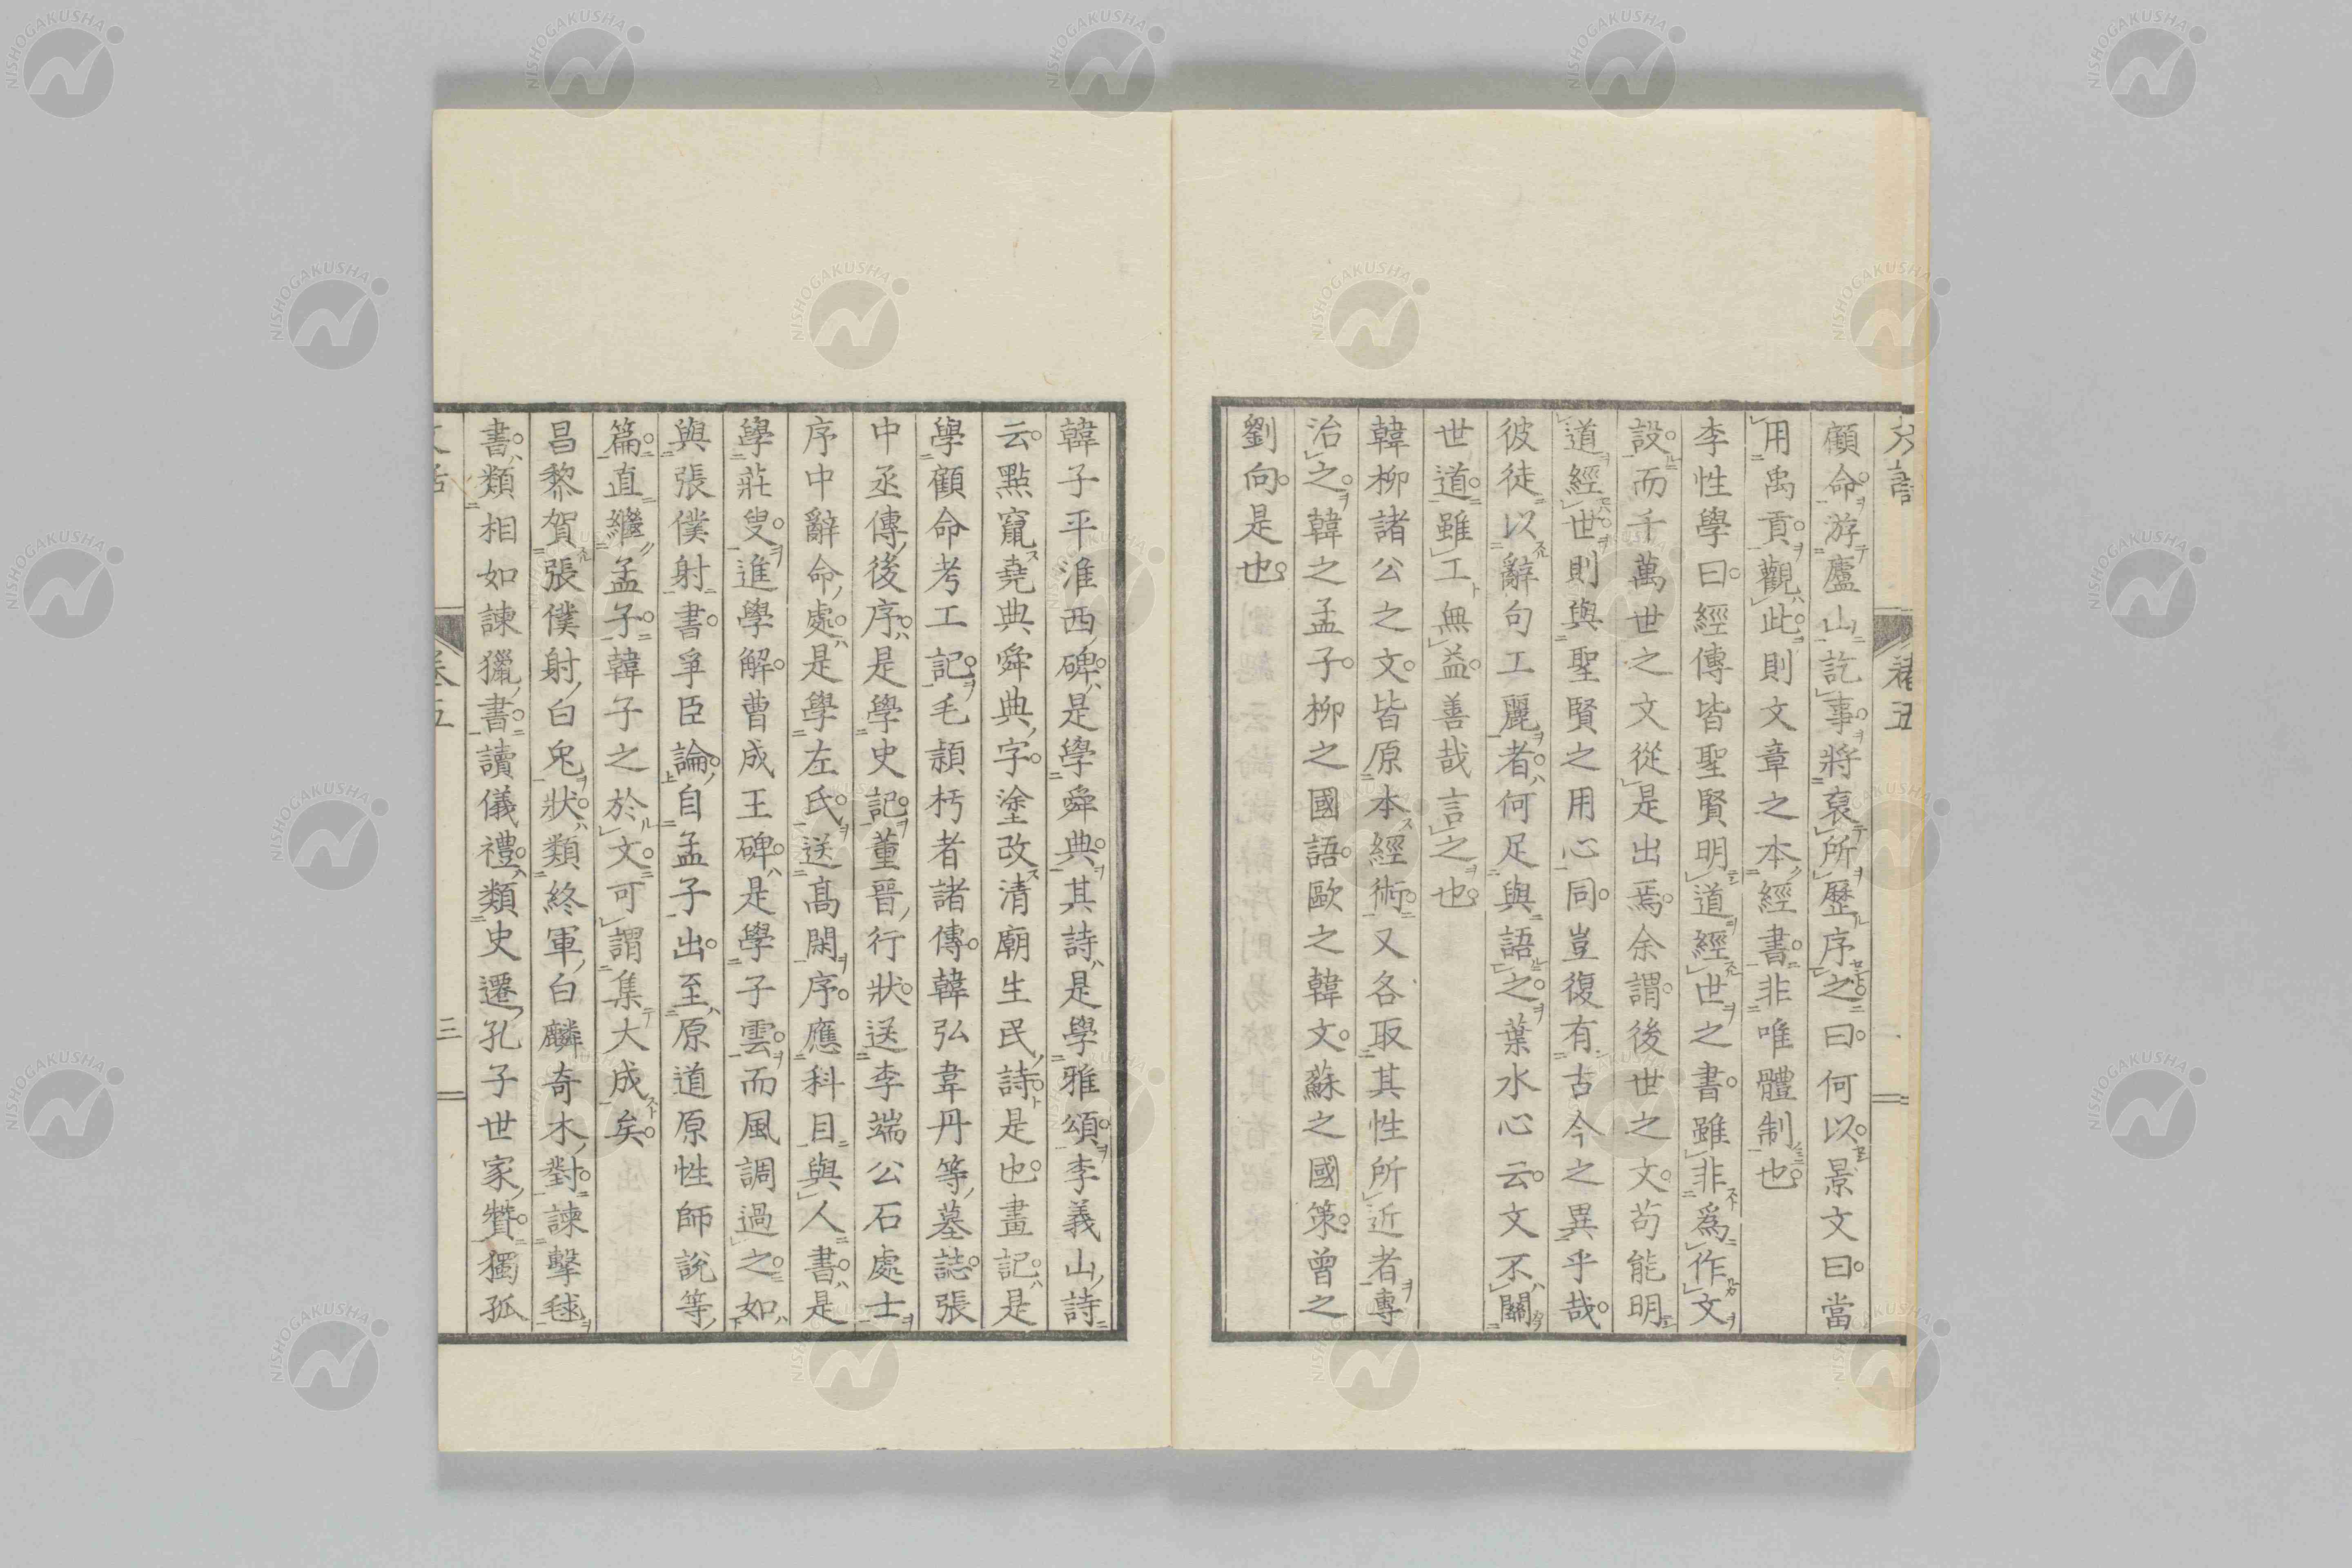 顧命游廬山訖事將裒所歷序之曰何以景文曰當
用禹貢觀此則文章之本經書非唯體制也
李性學曰經傳皆聖賢明道經世之書雖非爲作文
設而千萬世之文從是出焉余謂後世之文苟能明
道經世則與聖賢之用心同豈復有古今之異乎哉
彼徒以辭句工麗者何足與語之葉水心云文不關
世道雖工無益善哉言之也
韓柳諸公之文皆原本經術又各取其性所近者專
治之韓之孟子柳之國語歐之韓文蘇之國策曾之
劉向是也
韓子平淮西碑是學舜典其詩是學雅頌李義山詩
云點竄堯典舜典字塗改清廟生民詩是也畫記是
學顧命考工記毛頴杇者諸傳韓弘韋丹等墓誌張
中丞傳後序是學史記董晉行狀送李端公石處士
序中辭命處是學左氏送高閑序應科目與人書是
學莊叟進學解曹成王碑是學子雲而風調過之如
與張僕射書爭臣論自孟子出至原道原性師說等
篇直繼孟子韓子之於文可謂集大成矣
昌黎賀張僕射白兎狀類終軍白麟奇木對諫擊毬
書類相如諫獵書讀儀禮類史遷孔子世家贊獨孤
卷五
三
NISHOGAKUSHA